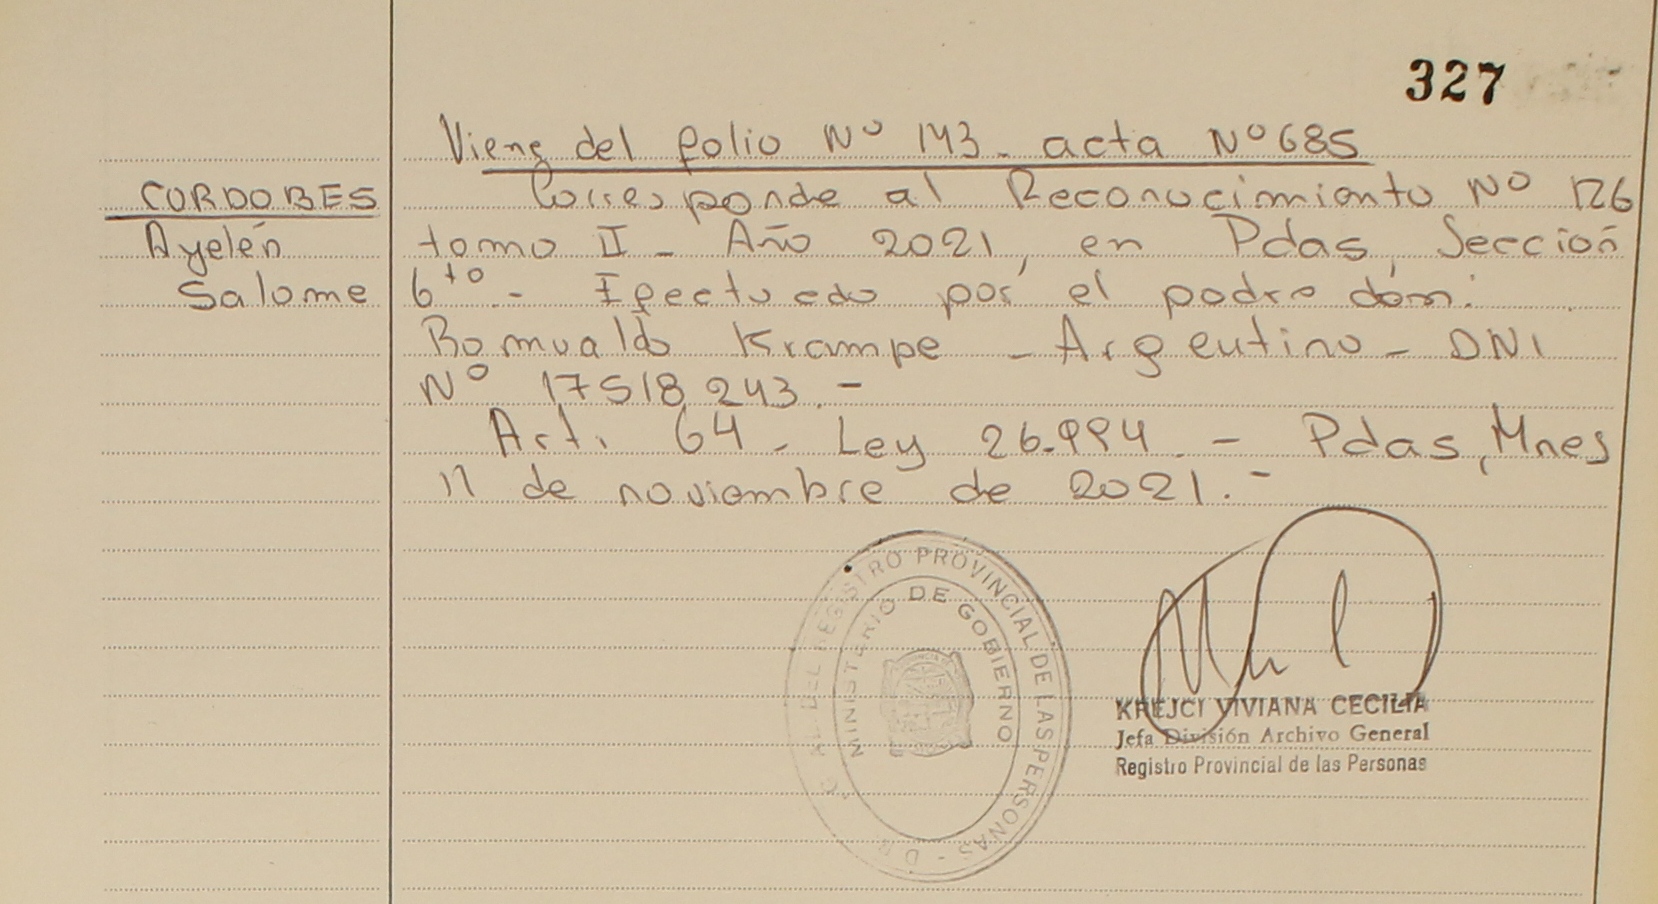 327
Viene del folio Nº 143 - acta Nº 685
CORDOBES
Corresponde al Reconocimiento Nº 126
Ayelén
tomo II - Año 2021, en Pdas, Sección
Salome
6to - Efectuado por el padre don:
Romualdo Krampe - Argentino - DNI
Nº 17518243.-
Art. 64 - Ley 26.994 - Pdas, Mnes
11 de noviembre de 2021.-
DEL REGISTRO PROVINCIAL DE LAS PERSONAS
MINISTERIO DE GOBIERNO
KREJCI VIVIANA CECILIA
Jefa División Archivo General
Registro Provincial de las Personas